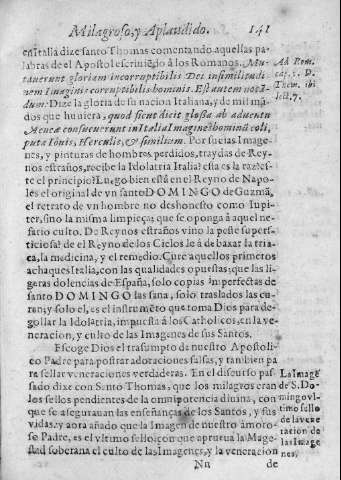 Milagroso, y Aplaudido. 141
en Italia dize santo Thomas comentando aquellas pa-
labras de el Apostol escriuiẽdo a los Romanos. Mu-
tauerunt gloriam incorruptibilis Dei in similitudi
nem Imaginis corruptibilis hominis. Est autem notã-
dum. Dize la gloria de su nacion Italiana, y de mil mã-
dos que huuiera, quod sicut dicit glossa ab aduentu
Aeneæ consueuerunt in Italia Imagines hominũ coli,
puta Iouis, Herculis, & similium. Por sucias Image-
nes, y pinturas de hombres perdidos, traydas de Rey-
nos estraños, recibe la Idolatria Italia? essa es la raz
te el principio? Luego bien està en el Reyno de Napo-
les el original de vn santo DOMINGO de Guzmã,
el retrato de vn hombre no deshonesto como Iupi-
ter, sino la misma limpieça; que se oponga à aquel ne-
fario culto. De Reynos estraños vino la peste supers-
ticiosa? de el Reyno de los Cielos le à de baxar la tria-
ca, la medicina, y el remedio. Cure aquellos primeros
achaques Italia, con las qualidades opuestas; que las li-
geras dolencias de España, solo copias imperfectas de
santo DOMINGO las sana, solo traslados las cu-
ran; y solo el, es el instrumẽto que toma Dios para de-
gollar la Idolatria, impuesta à los Catholicos, en la ve-
neracion, y culto de las Imagenes de sus Santos.
Escoge Dios el trasumpto de nuestro Apostoli-
co Padre para postrar adoraciones falsas, y tambien pa
ra sellar veneraciones verdaderas. En el discurso pas-
sado dixe con Santo Thomas, que los milagros eran
los sellos pendientes de la omnipotencia diuina, con
que se asegurauan las enseñanças de los Santos, y sus
vidas: y aora añado que la Imagen de nuestro amoro-
so Padre, es el vltimo sello, con que aprueua la Mage-
stad soberana el culto de las Imagenes, y la veneracion
Nn de
Ad Rom.
cap. 1. D.
Thom. ibi
lect. 7.
La Imagẽ
de S. Do-
mingo vl-
timo sello
de la vene
racion de
las Image
nes.